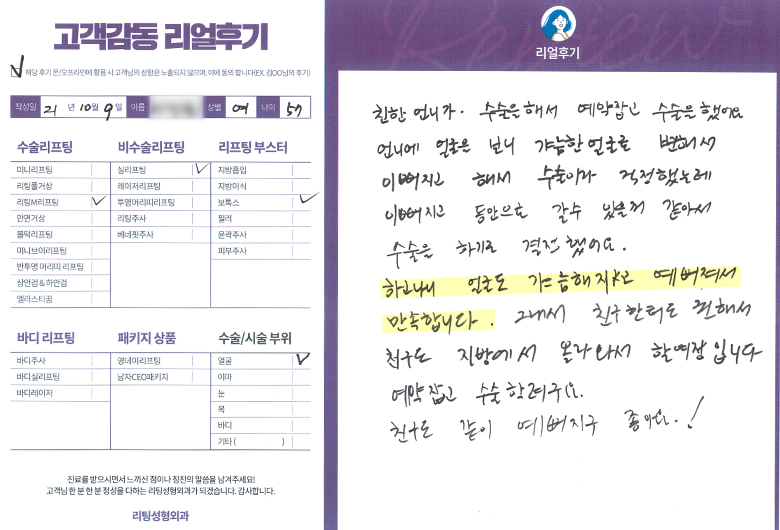 고객감동 리얼후기
해당 후기 온/오프라인에 활용 시 고객님의 성함은 노출되지 않으며, 이에 동의 합니다(EX. 김OO님의 후기)
작성일 21 년 10 월 9 일 이름 성별 여 나이 57
수술리프팅
미니리프팅
리팅풀거상
리팅M리프팅
안면거상
볼턱리프팅
미니브이리프팅
반투명 머리띠 리프팅
상안검 & 하안검
엘라스티꿈
비수술리프팅
실리프팅
레이저리프팅
투명머리띠리프팅
리팅주사
베네핏주사
리프팅 부스터
지방흡입
지방이식
보톡스
필러
윤곽주사
피부주사
바디 리프팅
바디주사
바디실리프팅
바디레이저
패키지 상품
영데이리프팅
남자CEO패키지
수술/시술 부위
얼굴
이마
눈
목
바디
기타 ( )
진료를 받으시면서 느끼신 점이나 칭찬의 말씀을 남겨주세요!
고객님 한 분 한 분 정성을 다하는 리팅성형외과가 되겠습니다. 감사합니다.
리팅성형외과
Review
리얼후기
친한 언니가. 수술을해서 예약잡고 수술을했어요
언니에 얼굴을 보니 갸늠한얼굴로 변해서
이뻐지고 해서 수술이라 걱정했는데
이뻐지고 동안으로 갈수 있을꺼 같아서
수술을 하기로 결정했어요.
하고나니 얼굴도 갸늠해지고 예뻐져서
만속합니다. 그래서 친구한테도 권해서
친구도 지방에서 올라와서 할예정입니다
예약잡고 수술할려구요.
친구도 같이 예뻐지구 좋아요.!